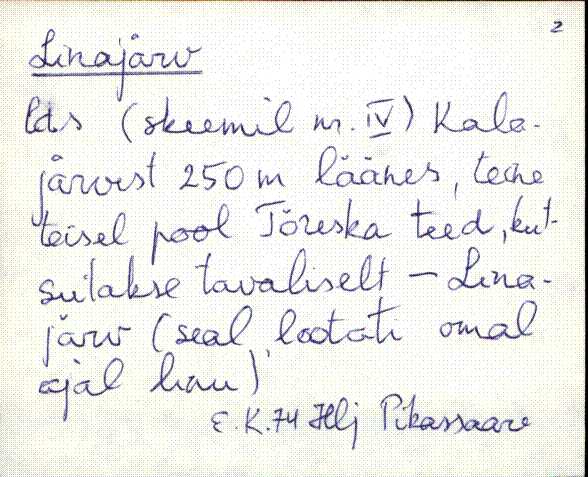 2
Linajärv
lds (skeemil nr. IV) Kala-
järvest 250 m läänes, teine
teisel pool Tõreska teed, kut-
sutakse tavaliselt - Lina-
järv (seal leotati omal
ajal linu)
E.K.74 Hlj Pikassaare